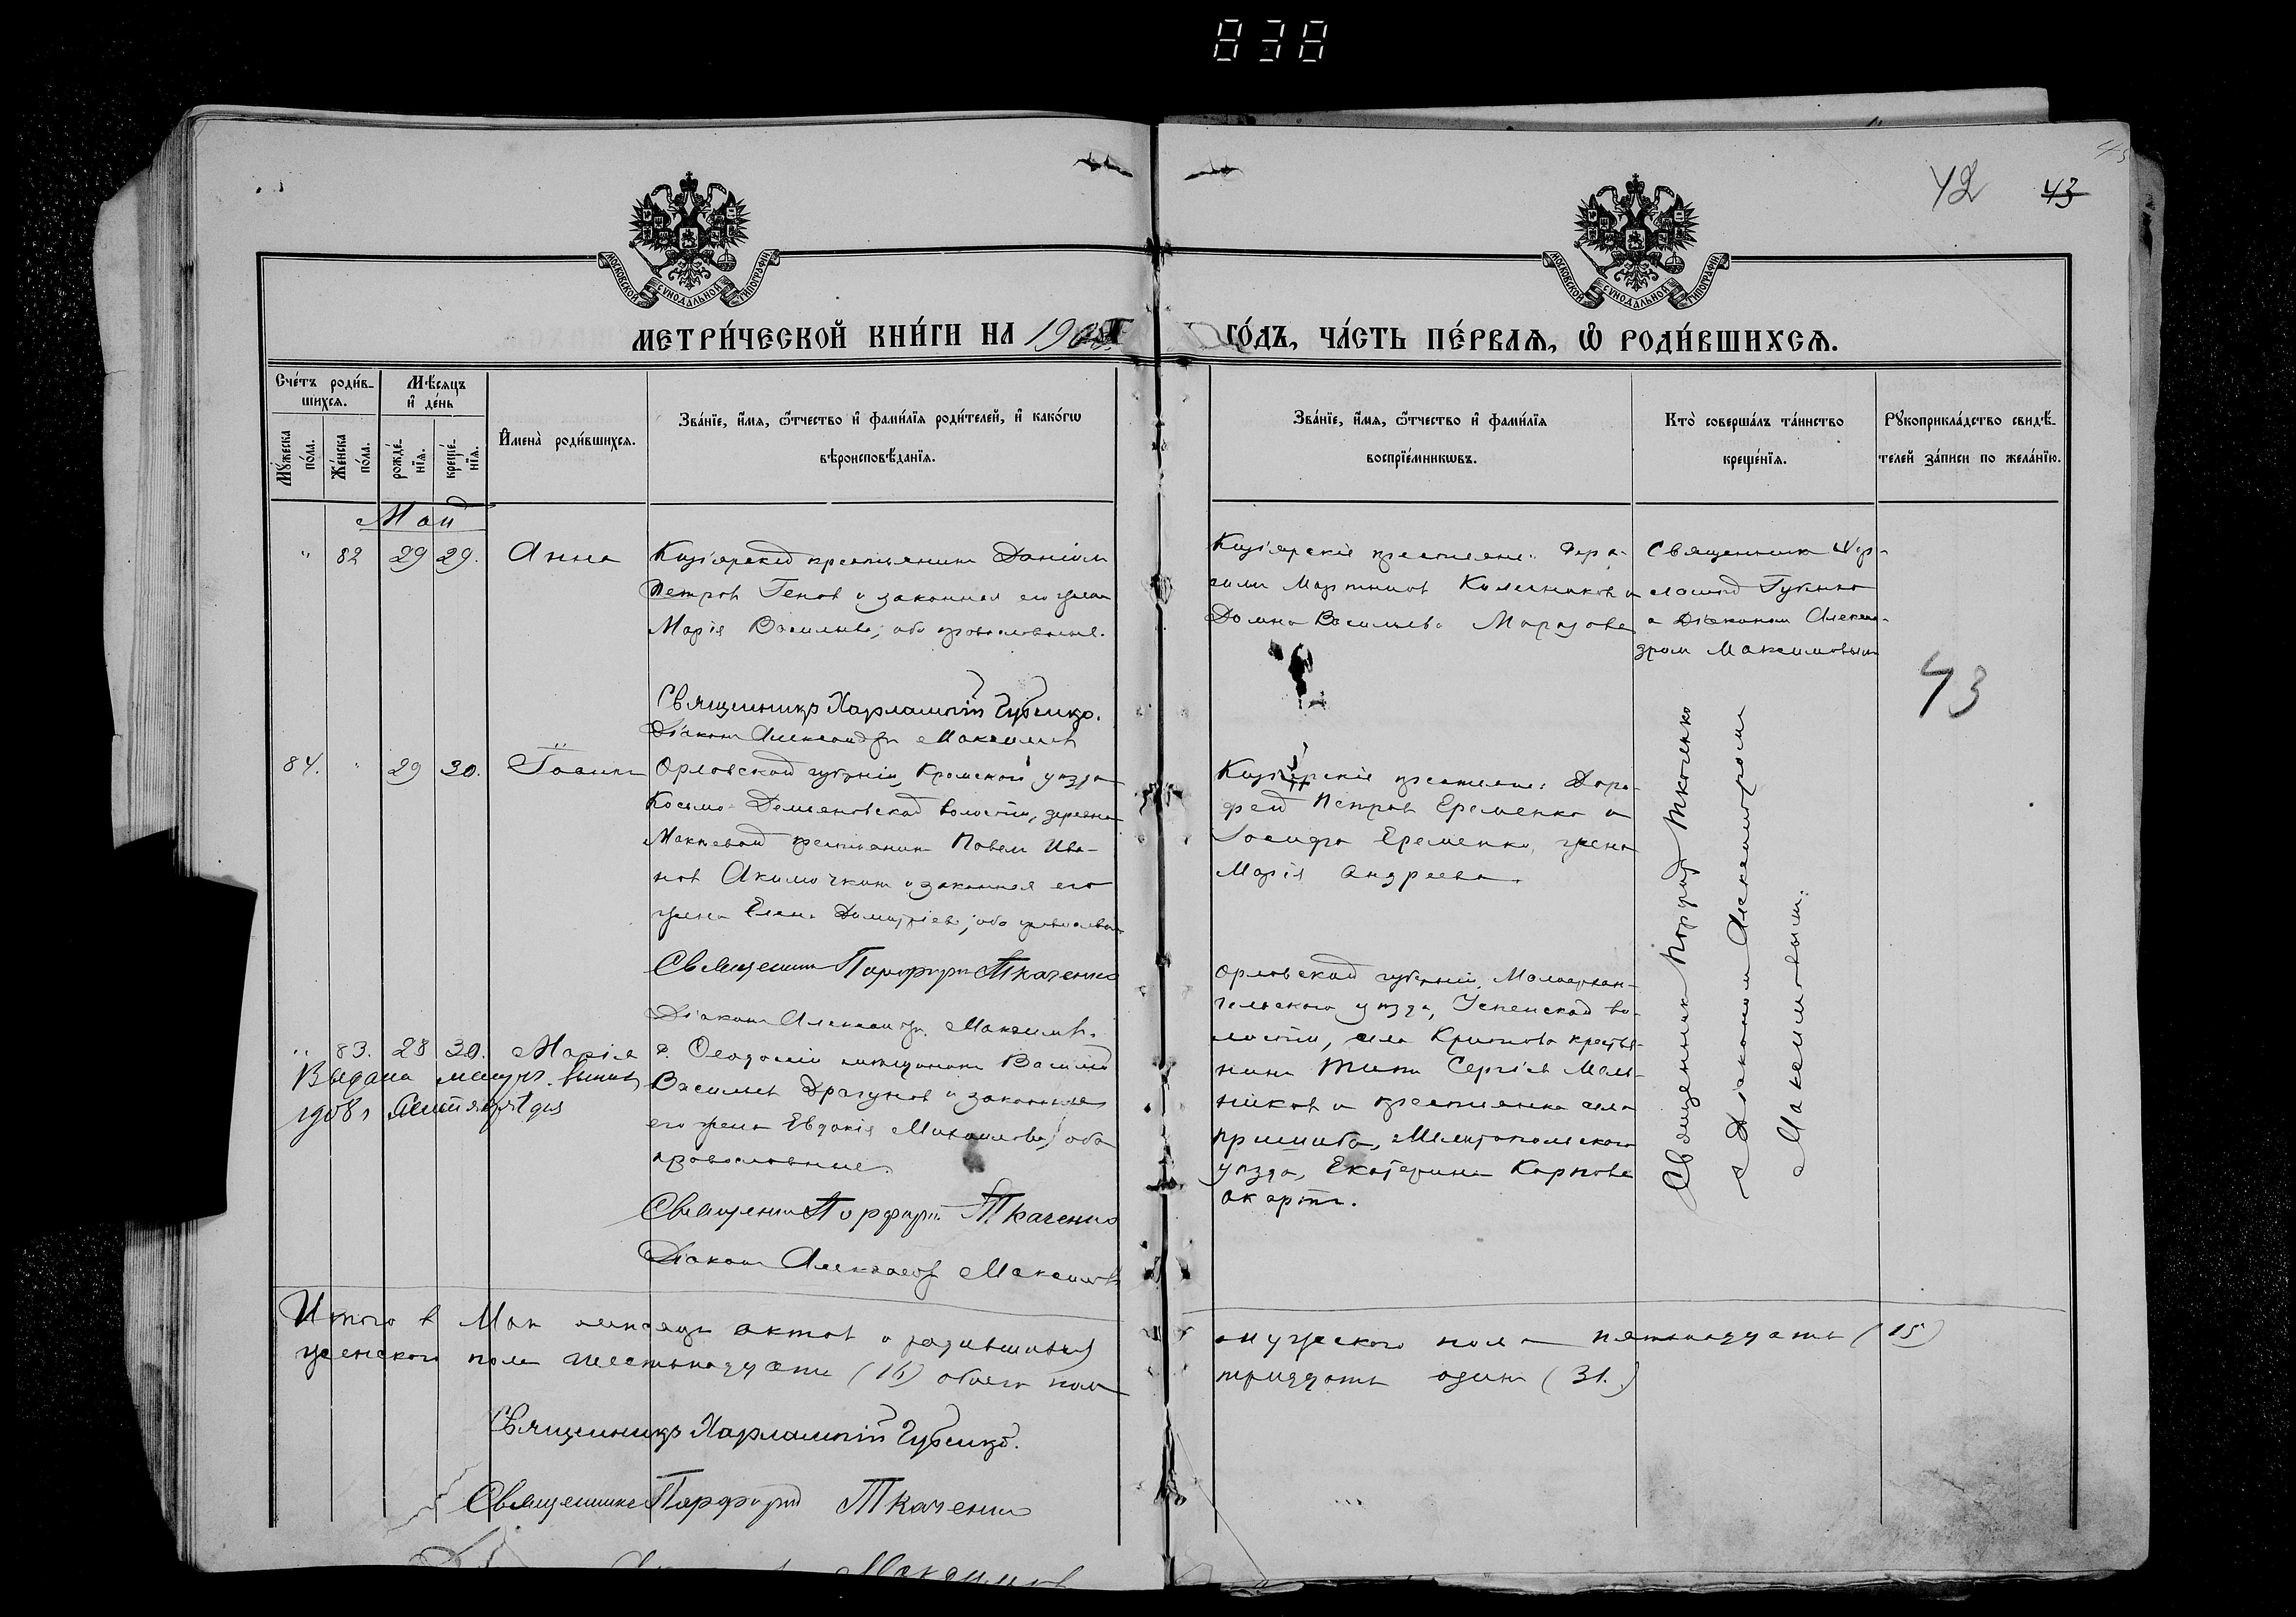 838
42 43
МОСКОВСКОЙ СѴНОДАЛЬНОЙ ТИПОГРАФІИ
МОСКОВСКОЙ СѴНОДАЛЬНОЙ ТИПОГРАФІИ
МЕТРИ́ЧЕСКОЙ КНИ́ГИ НА 190
ГО́ДЪ, ЧА́СТЬ ПЕ́РВАЯ, Ѡ РОДИ́ВШИХСЯ.
Сче́тъ роди́в-
шихся.
Му́жеска
по́ла.
Же́нска
по́ла.
Мѣ́сяцъ
и҆ де́нь
рожде́-
нїя.
креще́-
нїя.
И҆мена̀ роди́вшихся.
Зва́нїе, и҆́мя, ѻ҆́тчество и҆ фами́лїя роди́телей, и҆ како́гѡ
вѣроисповѣ́данїя.
Зва́нїе, и҆́мя, ѻ҆́тчество и҆ фами́лїя
воспрїе́мникѡвъ.
Кто̀ соверша́лъ та́инство
креще́нїя.
Рꙋкоприкла́дство свидѣ́-
телей за́писи по жела́нїю.
Май
" 82 29 29. Анна
Данiил
Петров Генов и законная его жена
Марiя Васильева, оба православные.
Священникъ Харлампiй Губенко.
Дiакон Александр Максимов
Мартинов Колесников и
Домна Васильева Морозова
Священник Хар-
лампий Губенко
с Дiаконом Алексан-
дром Максимовым
43
84. " 29 30. Iоанн
Орловской губернiи, Кромского уезда
Космо-Демьяновской волости, деревни
крестьянин Павел Ива-
нов Акимочкин и законная его
жена Елена Димитрiева, оба православные
Священник Порфирий Ткаченко
Дiакон Александр Максимов.
крестьяне: Доро-
фей Петров Еременко и
Iосифа Еременко, жена
Марiя Андреева
Священник Порфирий Ткаченко
с Дiаконом Александром
Максимовым.
" 83. 28 30. Марiя
Выдана метрич. выпись
1908 г.
г. Феодосии мещанин Василий
Васильев Драгунов и законная
его жена Евдокiя Михайлова, оба
православные
Священник Порфирий Ткаченко
Дiакон Александр Максимов
Орловской губернiи, Малоархан-
гельского уезда, Успенской во-
лости, села крестья-
нин Тит Сергiев Мель-
ников и крестьянка села
Пришиба, Мелитопольского
уезда, Екатерина Карпова
Итого в Мае месяце актов о родившихся
мужеского пола пятнадцать (15)
женского пола шестнадцать (16) обоего пола
тридцать один (31.)
Священникъ Харлампiй Губенко.
Священник Порфирий Ткаченко
Максимов